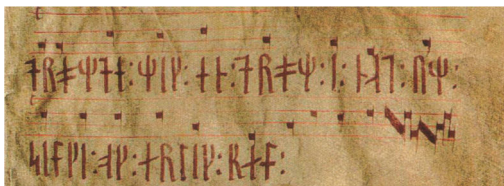 ᛑᚱᚯᛘᛑᛅ᛬ᛘᛁᚴ᛬ᛅᚿ᛬ᛑᚱᚯᛘ᛬ᛁ᛬ᚿᛆᛐ᛬ᚢᛘ᛬
ᛋᛁᛚᚴᛁ᛬ᚮᚴ᛬ᛅᚱᛚᛁᚴ᛬ᛔᛅᛚ᛬